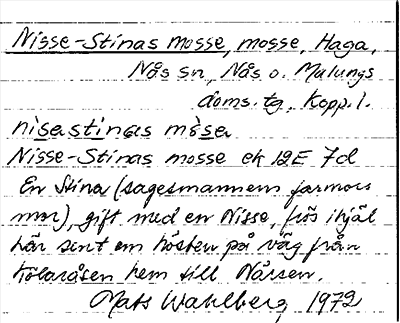 Nisse-Stinas mosse, mosse, Haga,
Nås sn, Nås o. Malungs
doms. tg, Kopp. l.
nisastinas måsa
Nisse-Stinas mosse ek 12E 7d
En Stina (sagesmannens farmors
mor), gift med en Nisse, frös ihjäl
här sent om hösten på väg från
Kölaråsen hem till Närsen.
Mats Wahlberg 1972